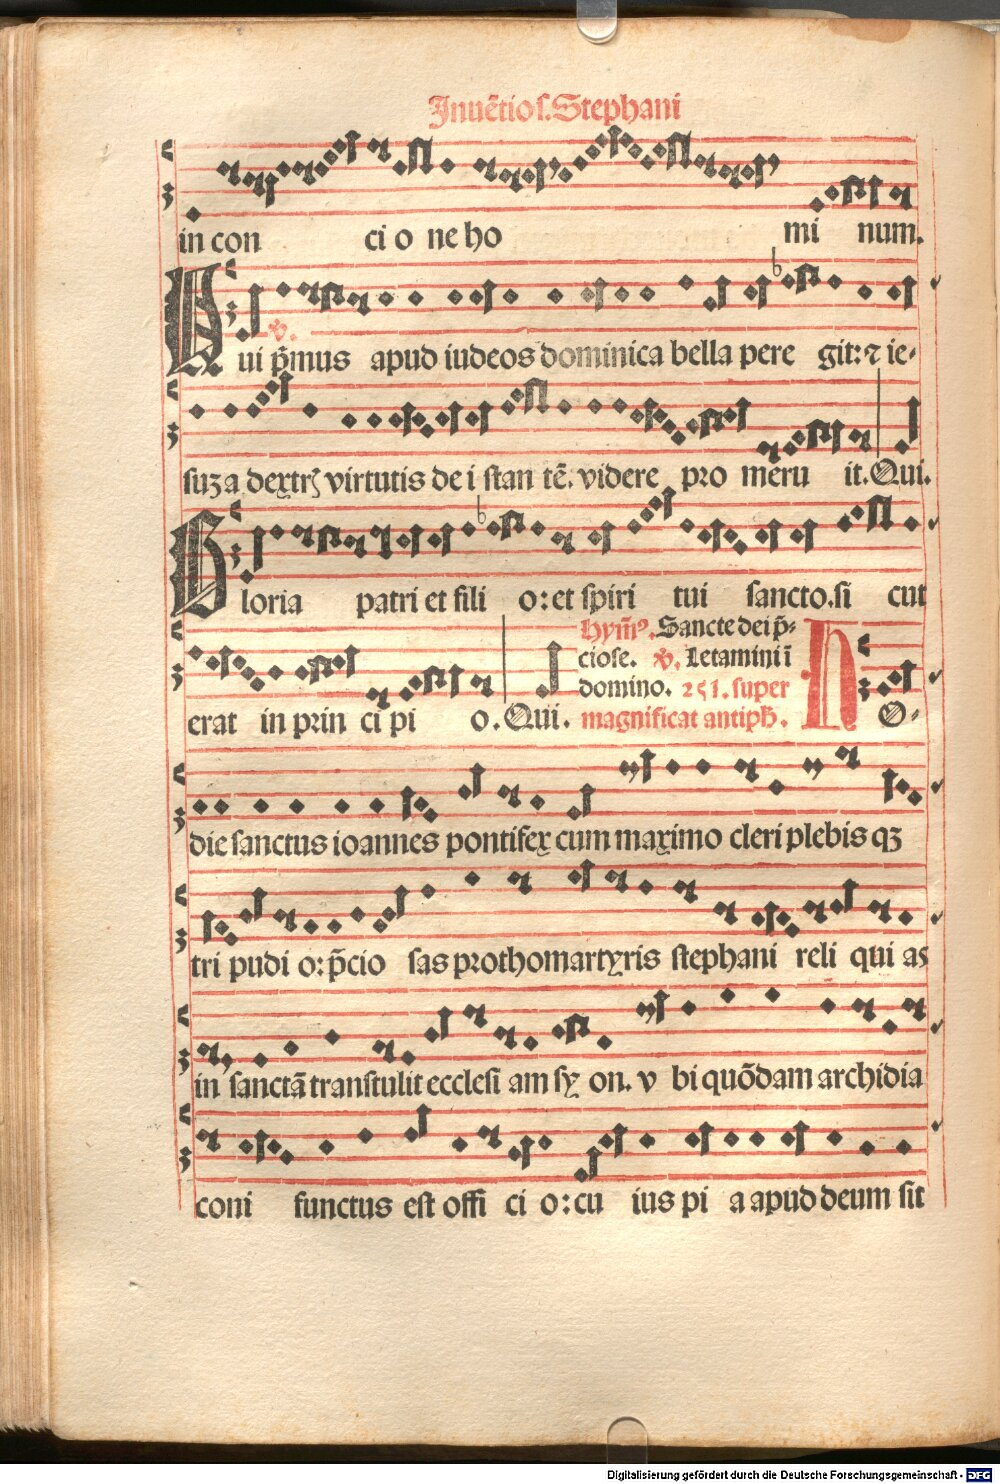 Inuẽtio ſ. Stephani
in con ci o ne ho mi num.
Qui p̃mus apud iudeos dominica bella pere git: ⁊ ie-
ſuȝ a dextrꝭ virtutis de i ſtan tẽ. videre pro meru it. Qui.
℣.
Gloria patri et fili o: et ſpiri tui ſancto. ſi cut
erat in prin ci pi o. Qui.
hym̃⁹. Sancte dei p̃-
cioſe. ℣. Letamini ĩ
domino. 251. ſuper
magnificat antiph̃.
HO-
die ſanctus ioannes pontifex cum maximo cleri plebis qȝ
tri pudi o: p̃cio ſas prothomartyris ſtephani reli qui as
in ſanctã tranſtulit eccleſi am ſy on. v bi quõdam archidia
coni functus eſt offi ci o: cu ius pi a apud deum ſit
Digitalisierung gefördert durch die Deutsche Forschungsgemeinschaft - DFG